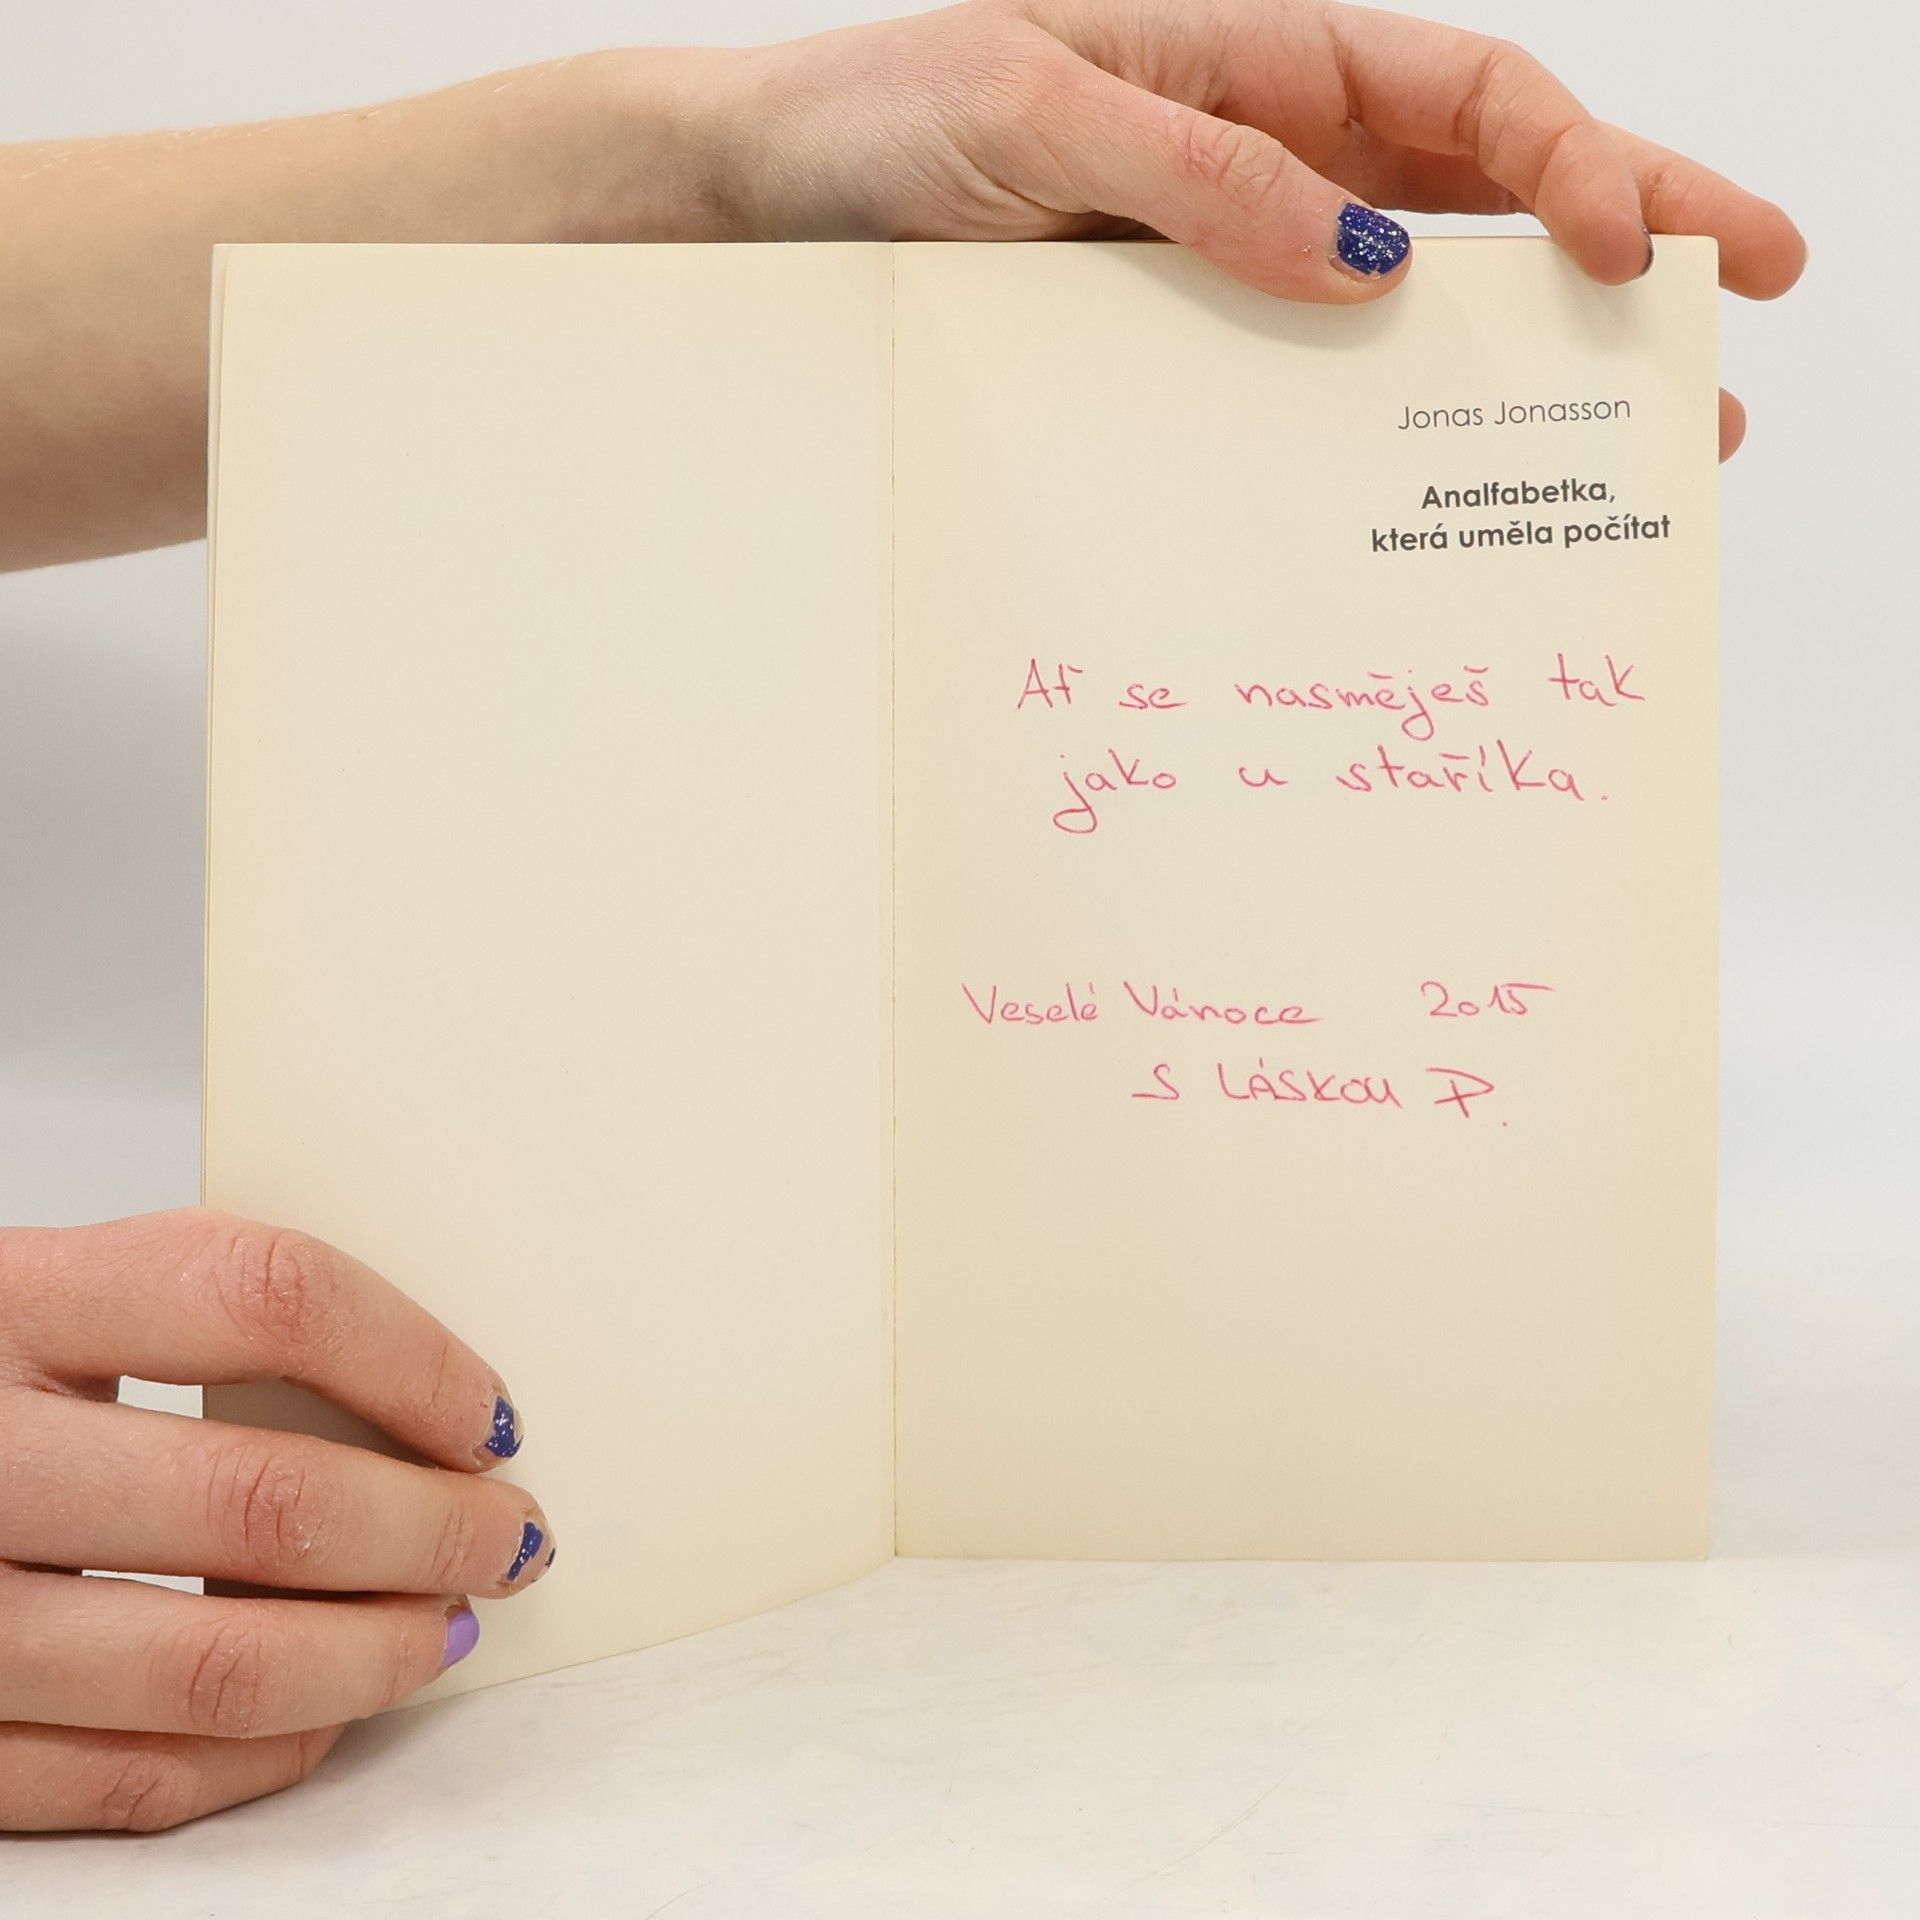 Jonas Jonasson
Analfabetka,
která uměla počítat
Ať se nasměješ tak
jako u staříka.
Veselé Vánoce 2015
S LÁSKOU P.